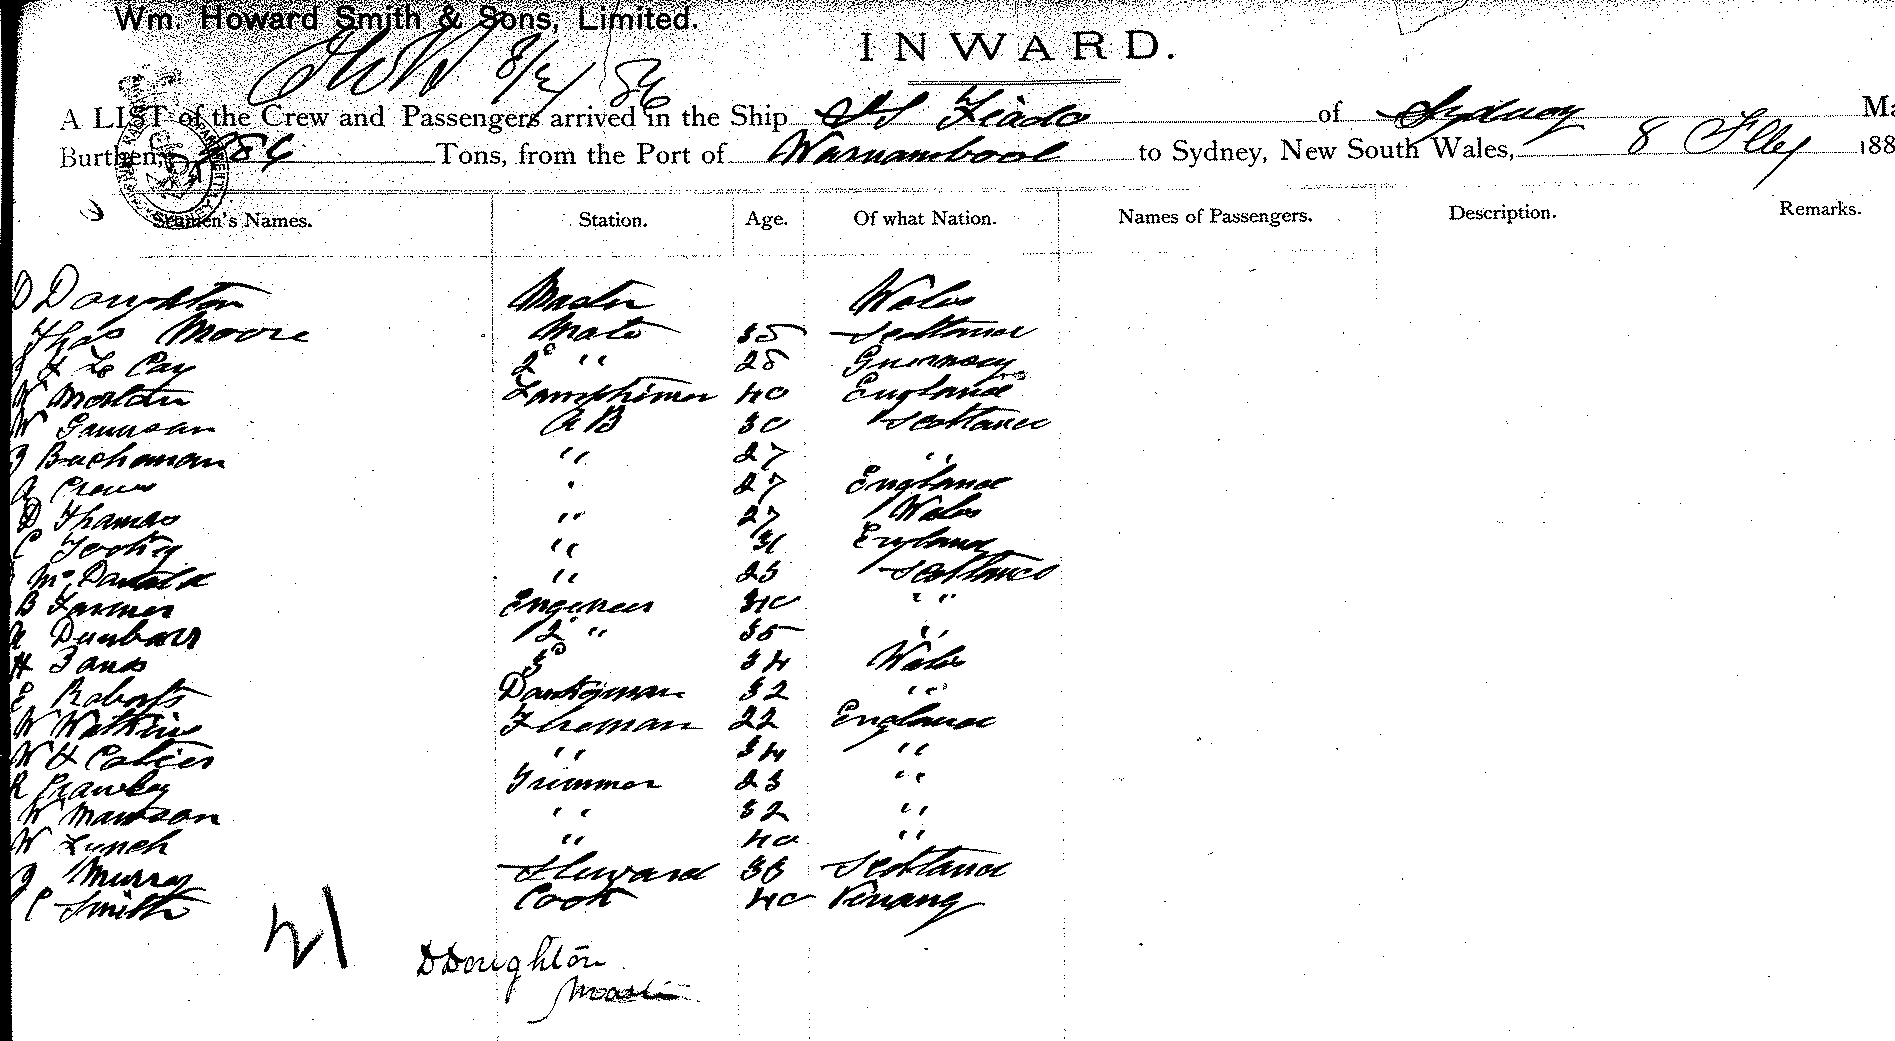 Wm. Howard Smith & Sons, Limited.
INWARD.
8/2/86
A LIST of the Crew and Passengers arrived in the Ship SS of Sydney
Burthen, Tons, from the Port of Warnambool to Sydney, New South Wales, 8 188
Seamen's Names. Station. Age. Of what Nation. Names of Passengers. Description. Remarks.
D Doughton Master Wales
Thos Moore Mate 35 Scotland
Le Cay 2 " 28 Guernsey
W Lampstrimer 40 England
W AB 30 Scotland
J Buchanan " 27 "
A 27 England
D Thomas " 27 Wales
C " 31 England
McDonald " 25 Scotland
B Farmer Engineer 40 " "
A Dunbar 2 " 35 "
H 3 34 Wales
E Roberts 32 "
W Watkins Fireman 22 England
W H " 34 "
R Crawley Trimmer 23 "
W Mawson " 32 "
W Lynch " 40 "
J Murray Steward 36 Scotland
C Smith Cook 40 Penang
21
D Doughton
Master